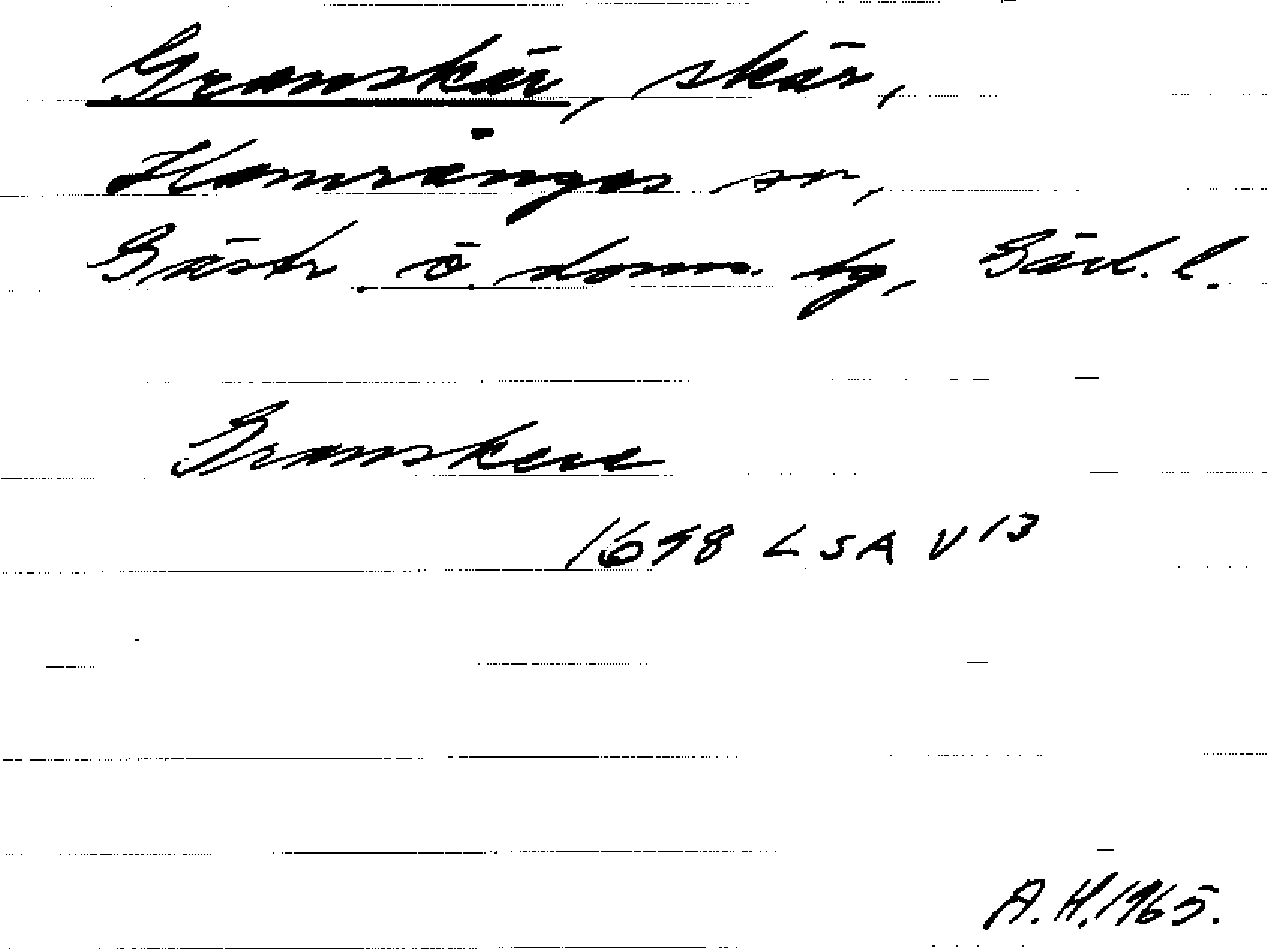 Granskär, skär,
Hamrånges sn,
Gästr. ö. doms. tg, Gävl. l.
Granskere
1698 LSA V 13
A.H. 1965.